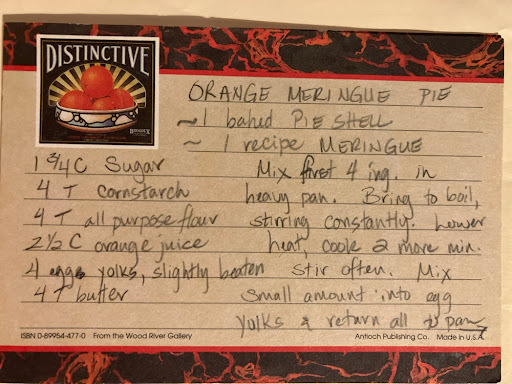 DISTINCTIVE
ORANGE MERINGUE PIE
~ 1 baked PIE SHELL
~ 1 recipe MERINGUE
1 3/4 C Sugar
4 T cornstarch
4 T all purpose flour
2 1/2 C orange juice
4 eggs yolks, slightly beaten
4 T butter
Mix first 4 ing. in
heavy pan. Bring to boil,
stirring constantly. Lower
heat, cook 2 more min.
stir often. Mix
small amount into egg
yolks & return all to pan
ISBN 0-89954-477-0 From the Wood River Gallery Antioch Publishing Co. Made in U.S.A.